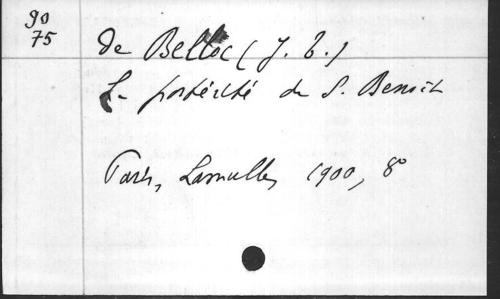 90
75
de Belloc (J. B.)
La postérité de S. Benoit
Paris, Lamulle, 1900, 8°